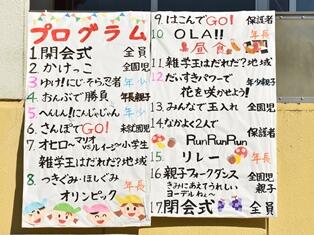 プログラム
1. 開会式 全員
2. かけっこ 全園児
3 ゆけ!にじ・そら忍者 年少
4. おんぶで勝負 年長親子
5. へんしん!にんじゃじゃん 年少
6. さんぽでGO! 未就園児
7. オヒロ〜マリオVSルイージ〜 小学生
雑学王はだれだ?地域
8. つきぐみ・ほしぐみ 年長
オリンピック
9. はこんでGO! 保護者
10 OLA!! 年長
昼食
11. 雑学王はだれだ?地域
12. だいすきパワーで 年少親子
花を咲かせよう!
13. みんなで玉入れ 全園児
14. なかよく2人で 保護者
Run Run Run
15. リレー 年長
16. 親子フォークダンス 全園児
きみにあえてうれしい 親子
ヨーデルわぁ〜
17. 閉会式 全員